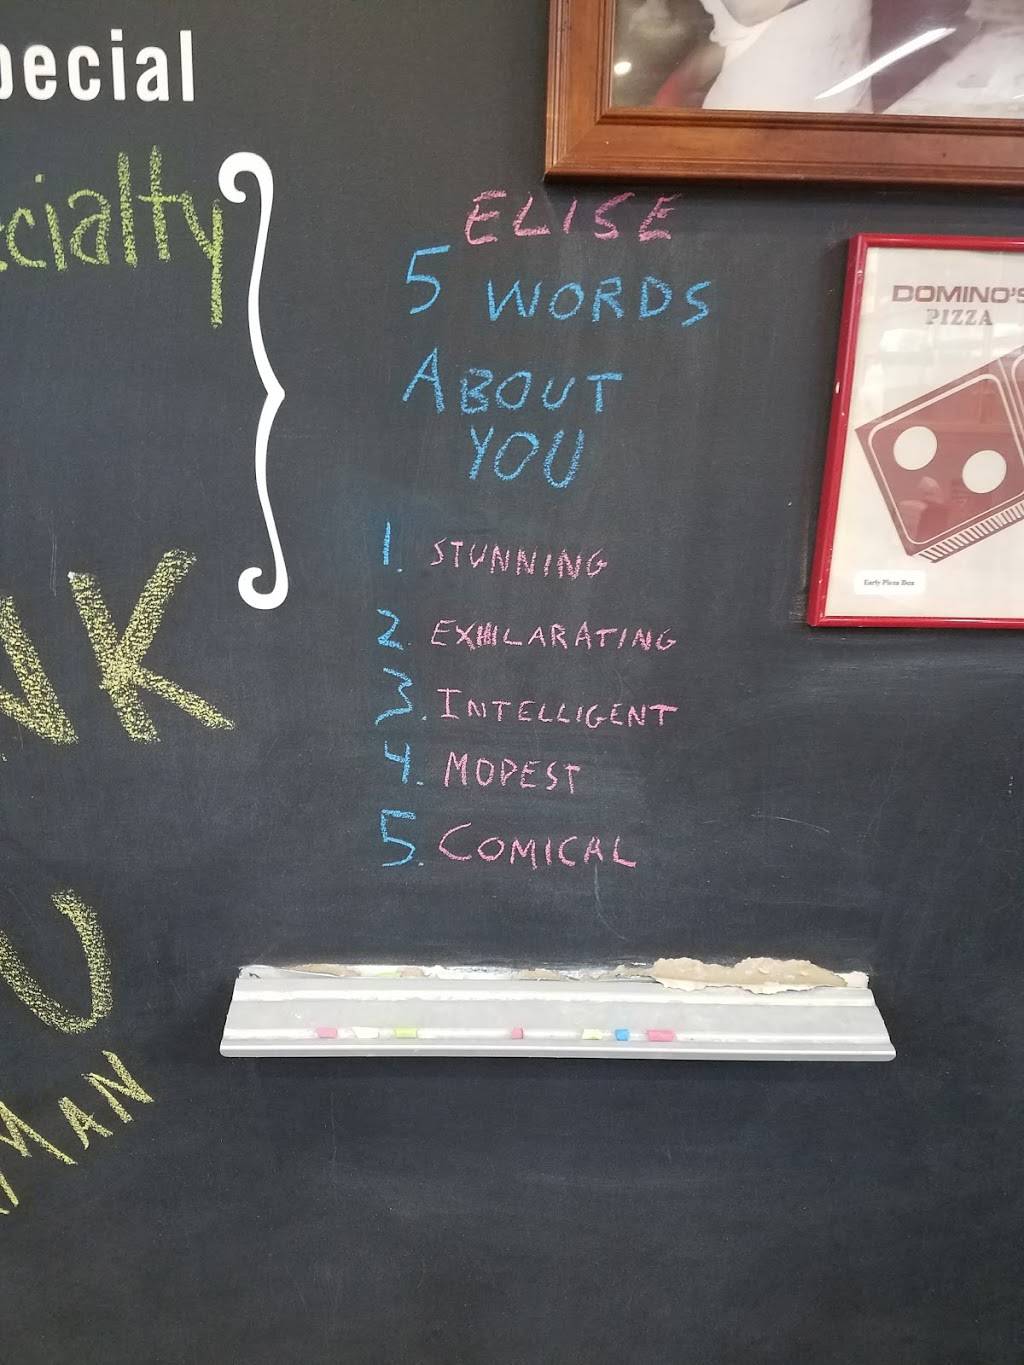 pecial
cialty
ELISE
5 WORDS
ABOUT
YOU
1. STUNNING
2. EXHILARATING
3. INTELLIGENT
4. MODEST
5. COMICAL
NK
U
MAN
DOMINO'S
PIZZA
Early Pizza Box